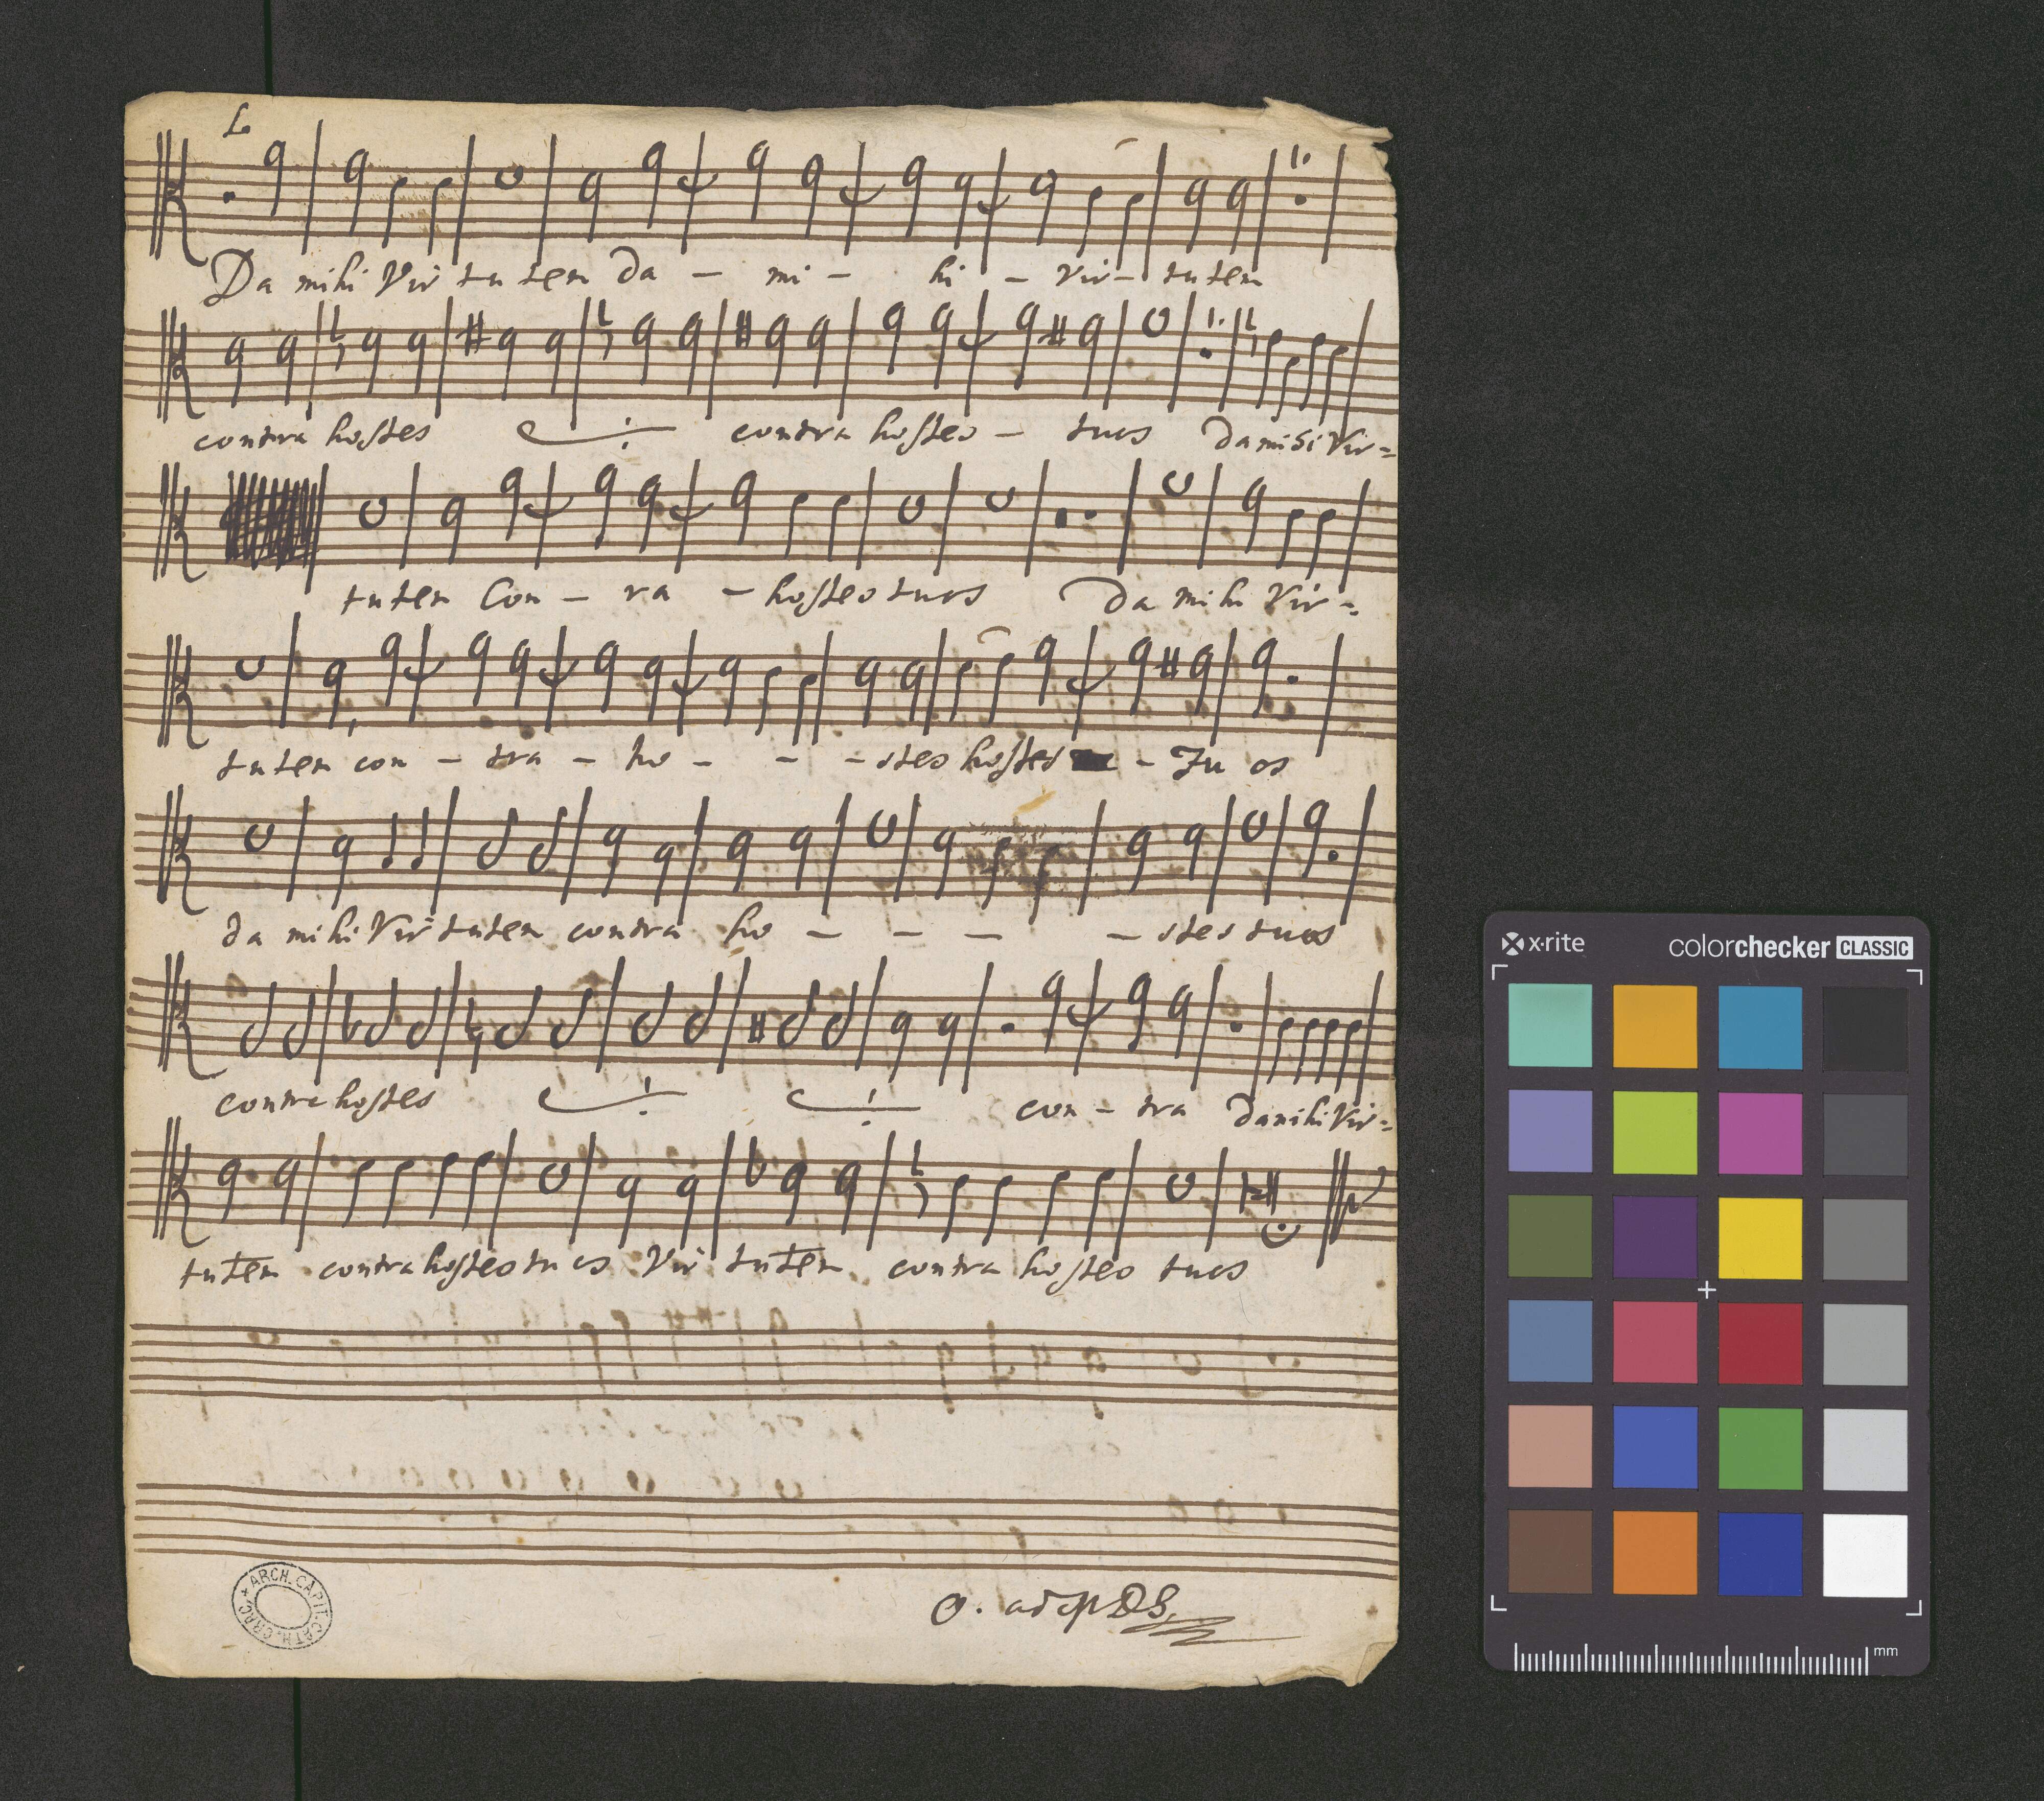 Da mihi Vir tu tem Da - mi - hi - vir - tu tem
contra hostes contra hostes - tuos Da mihi Vir=
tutem Con - ra - hostes tuos Da mihi Vir-=
tutem con - tra - ho - - - stes hostes - Tu os
da mihi Virtutem contra ho - - - - stes tuos
contra hostes con - tra Da mihi Vir-=
tutem contra hostes tuos Vir tutem contra hostes tuos
ARCH. CAPIT. CATH. CRAC.
O. a d
x·rite colorchecker CLASSIC
mm